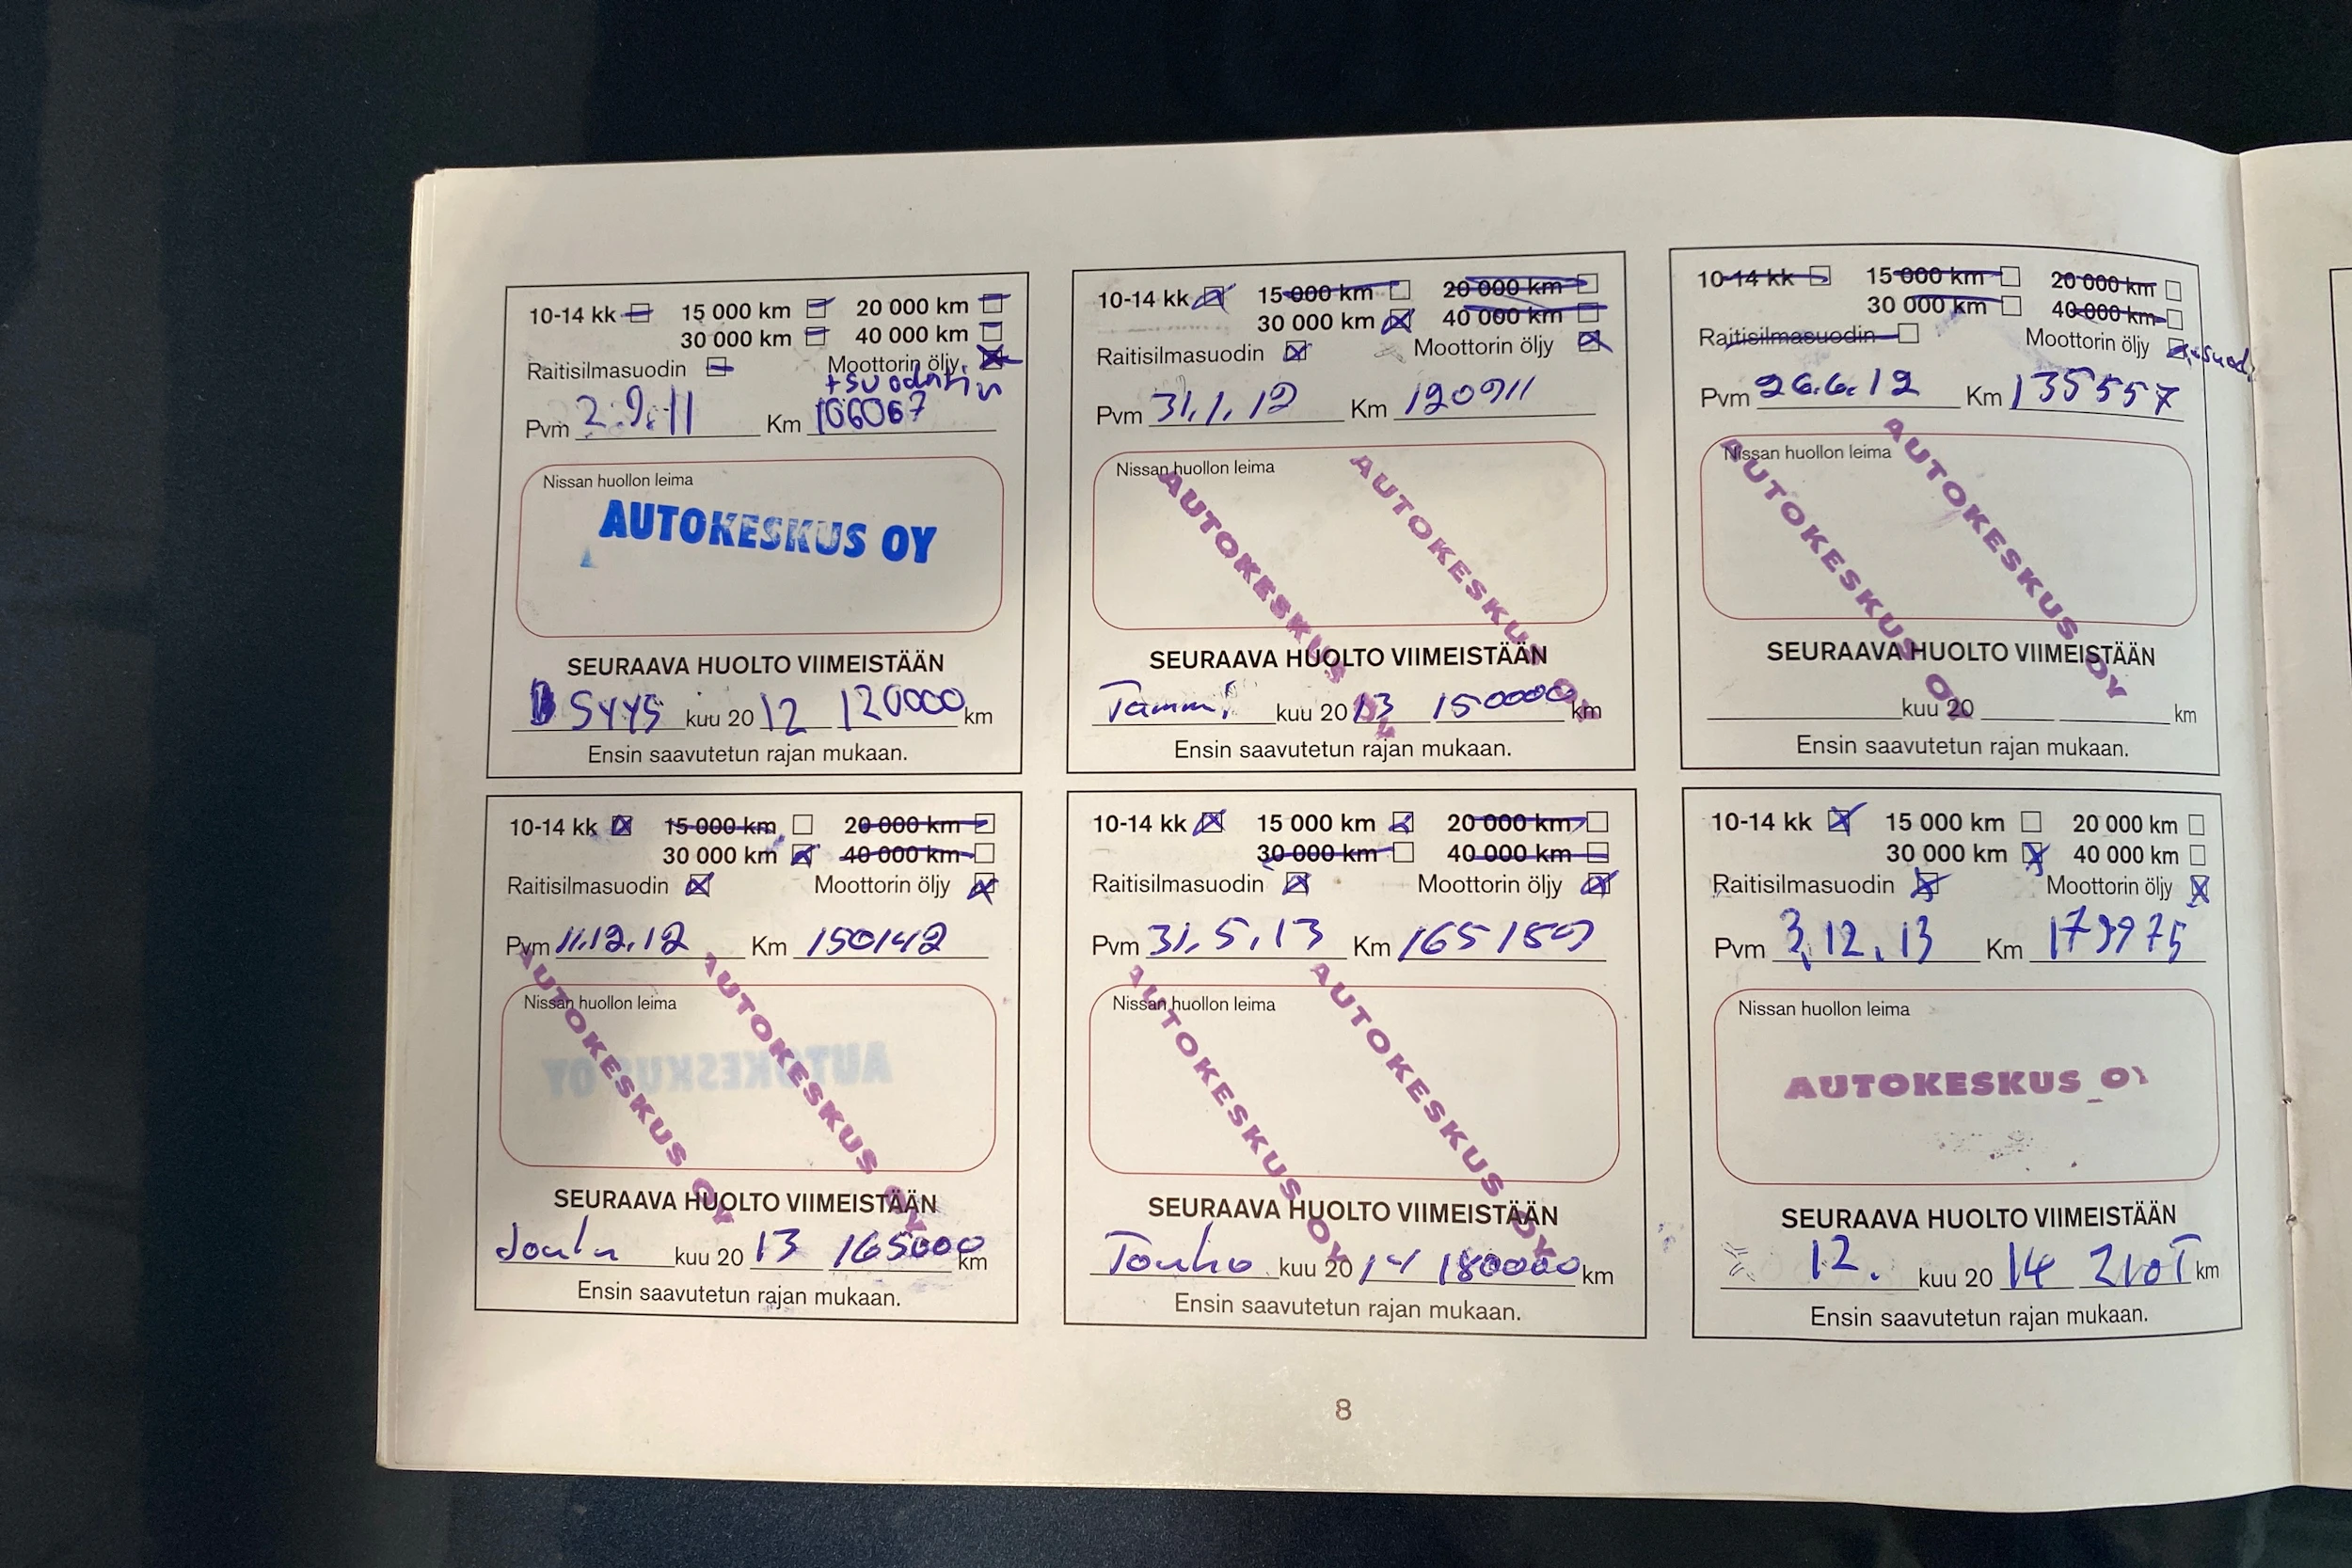 10-14 kk 15 000 km 20 000 km
30 000 km 40 000 km
Raitisilmasuodin Moottorin öljy
+suodatin
Pvm 2.9.11 Km 106067
Nissan huollon leima
AUTOKESKUS OY
SEURAAVA HUOLTO VIIMEISTÄÄN
Syys kuu 20 12 120000 km
Ensin saavutetun rajan mukaan.
10-14 kk 15 000 km 20 000 km
30 000 km 40 000 km
Raitisilmasuodin Moottorin öljy
Pvm 31.1.12 Km 120911
Nissan huollon leima
AUTOKESKUS OY
AUTOKESKUS OY
SEURAAVA HUOLTO VIIMEISTÄÄN
Tammi kuu 20 13 150000 km
Ensin saavutetun rajan mukaan.
10-14 kk 15 000 km 20 000 km
30 000 km 40 000 km
Raitisilmasuodin Moottorin öljy +suod.
Pvm 26.6.12 Km 135557
Nissan huollon leima
AUTOKESKUS OY
AUTOKESKUS OY
SEURAAVA HUOLTO VIIMEISTÄÄN
kuu 20 km
Ensin saavutetun rajan mukaan.
10-14 kk 15 000 km 20 000 km
30 000 km 40 000 km
Raitisilmasuodin Moottorin öljy
Pvm 11.12.12 Km 150142
Nissan huollon leima
AUTOKESKUS OY
AUTOKESKUS OY
SEURAAVA HUOLTO VIIMEISTÄÄN
Joulu kuu 20 13 165000 km
Ensin saavutetun rajan mukaan.
10-14 kk 15 000 km 20 000 km
30 000 km 40 000 km
Raitisilmasuodin Moottorin öljy
Pvm 31.5.13 Km 165189
Nissan huollon leima
AUTOKESKUS OY
AUTOKESKUS OY
SEURAAVA HUOLTO VIIMEISTÄÄN
Touko kuu 20 14 180000 km
Ensin saavutetun rajan mukaan.
10-14 kk 15 000 km 20 000 km
30 000 km 40 000 km
Raitisilmasuodin Moottorin öljy
Pvm 3.12.13 Km 179975
Nissan huollon leima
AUTOKESKUS OY
SEURAAVA HUOLTO VIIMEISTÄÄN
12. kuu 20 14 210T km
Ensin saavutetun rajan mukaan.
8